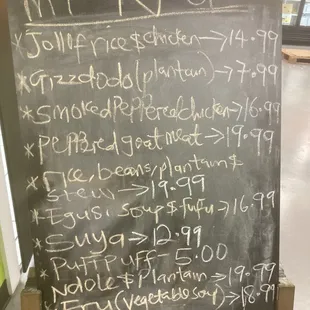 *Jollof rice $ chicken→14.99
*Gizzdodo(plantain)→7.99
*Smoked Peppered chicken→16.99
*peppered goat meat→19.99
*rice, beans, plantain $
stew→19.99
*Egusi soup $ fufu→16.99
*Suya→12.99
Puff puff-5.00
Ndole $ Plantain→19.99
(vegetable soup)→18.99